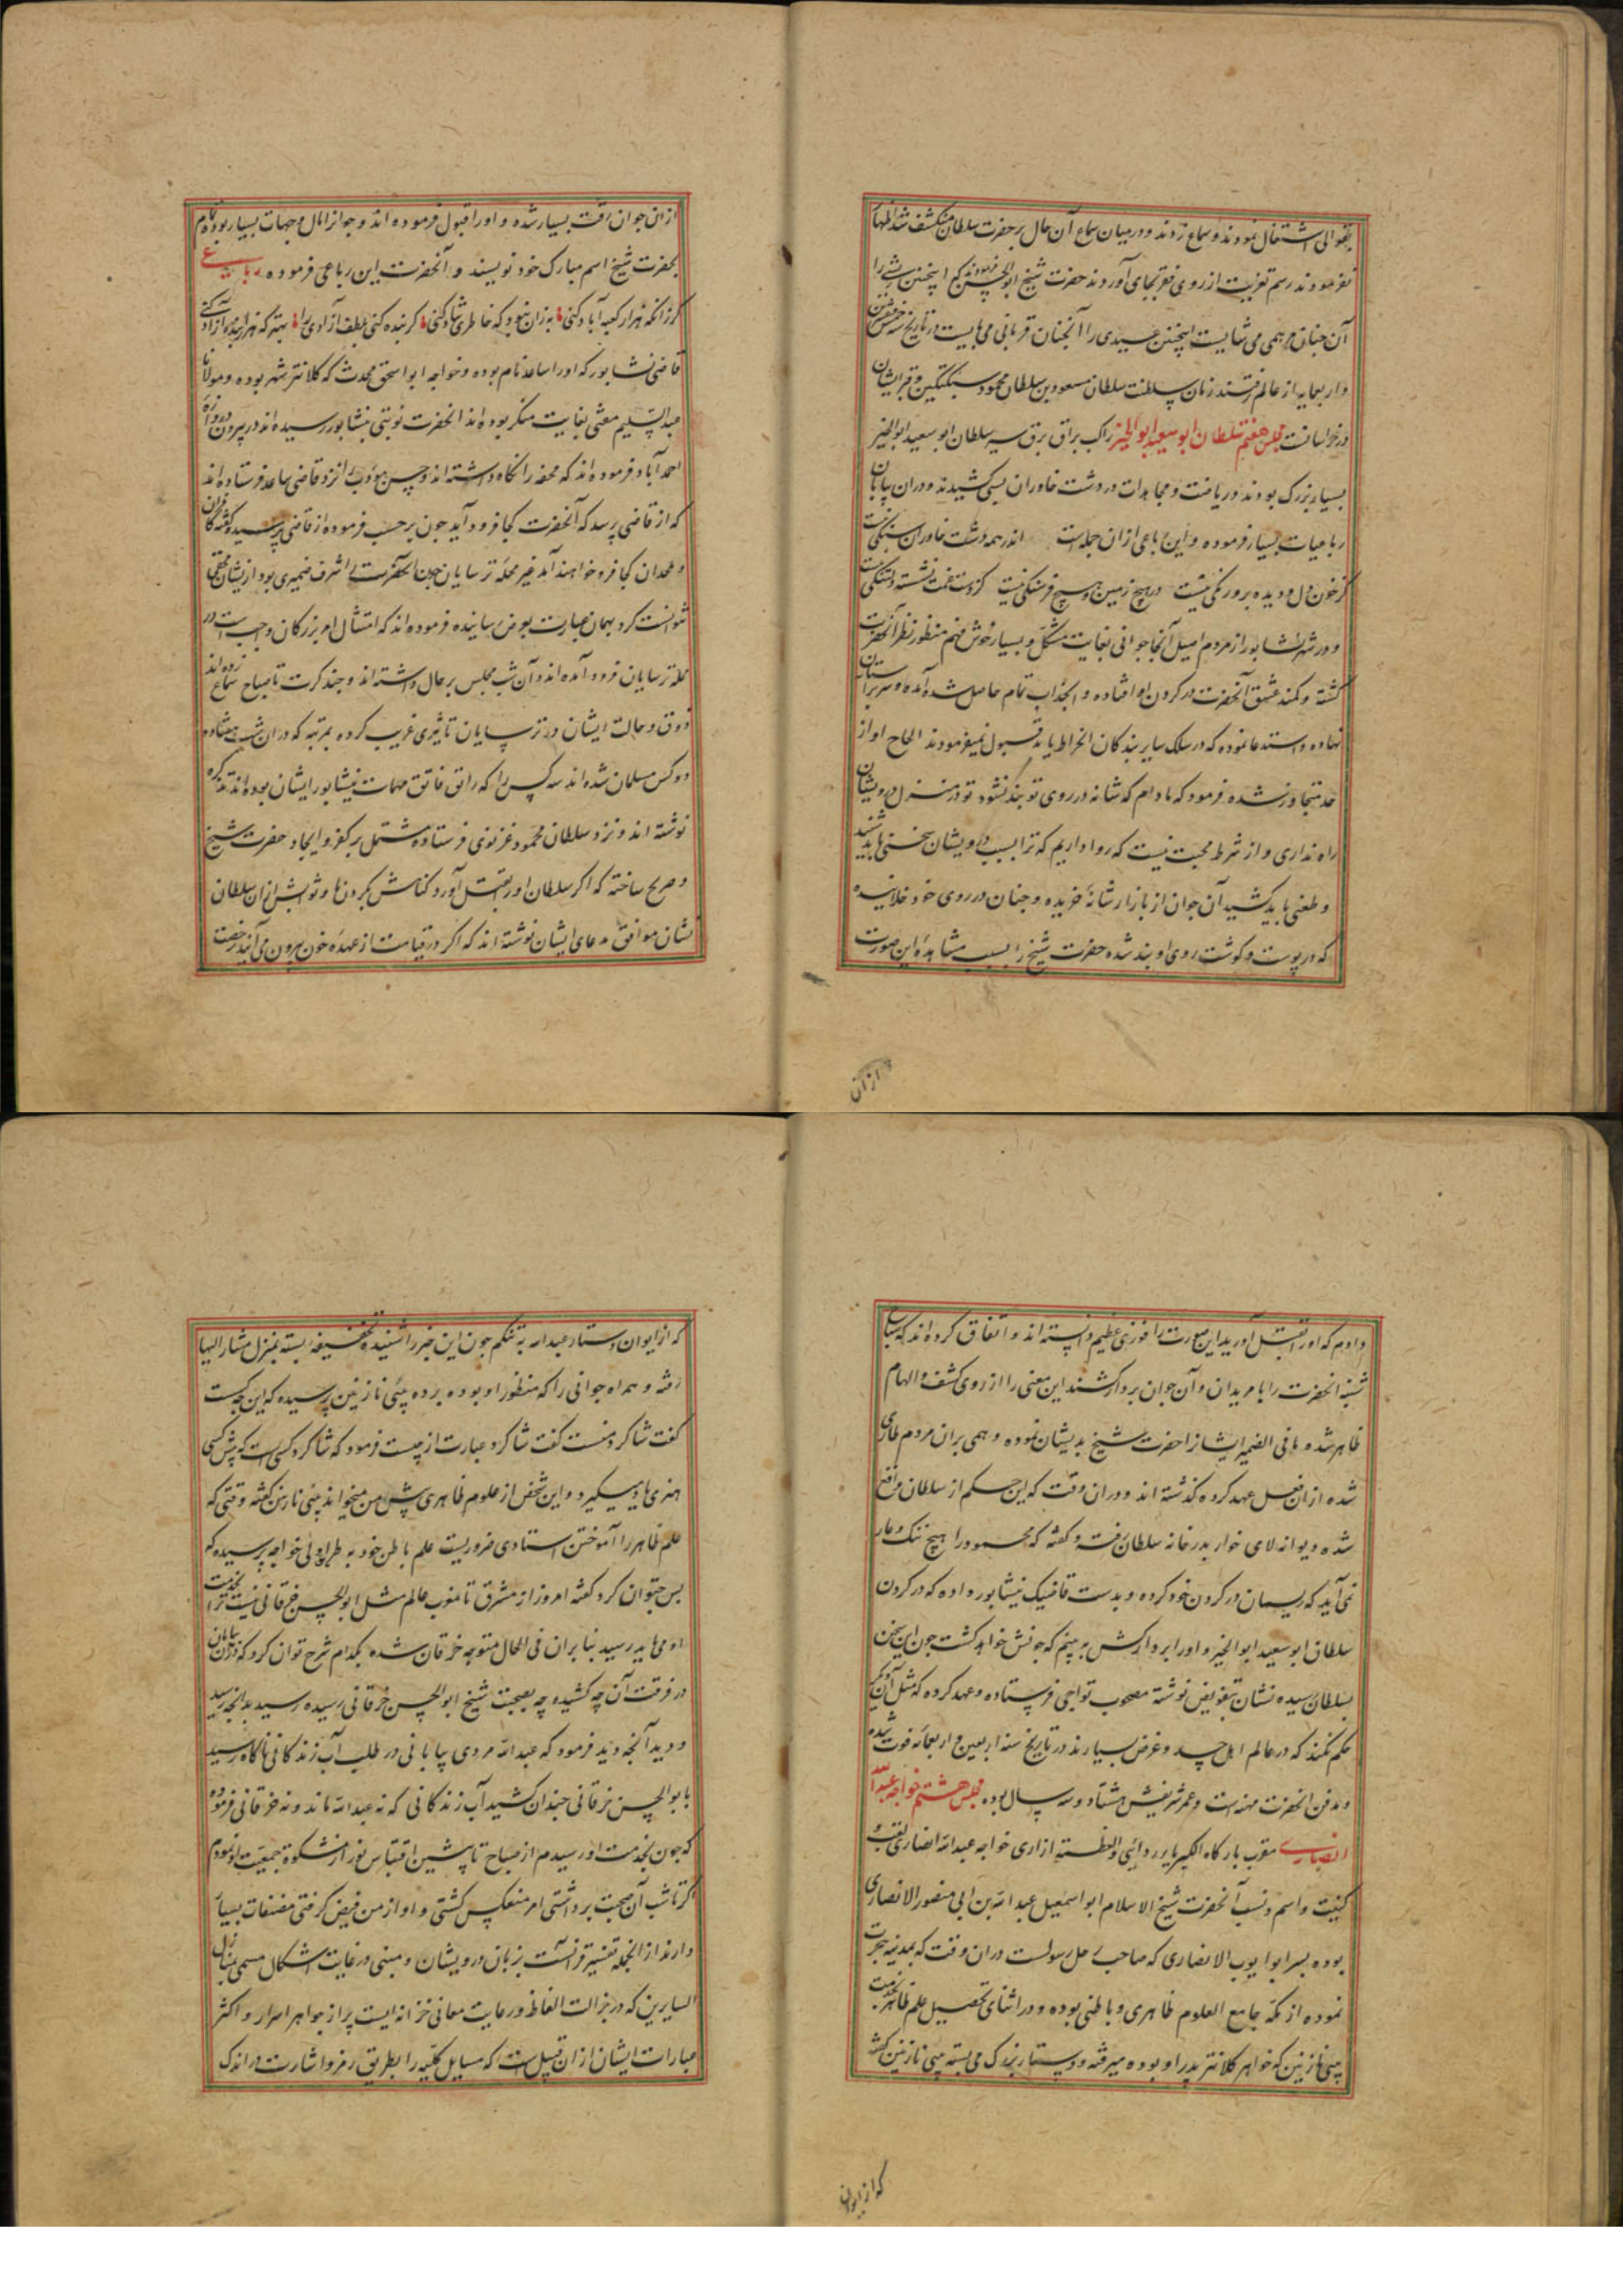 بقوالی اشتغال نمودند و سماع زدند و در میان سماع آن حال بر حضرت سلطان منکشف شد اظهار
نفرمودند رسم تعزیت از روی فقر بجای آوردند حضرت شیخ ابوالحسن فرمودند که اینچنین شبی را
آن چنان مرهمی می شایست اینچنین عیدی را آنچنان قربانی می بایست در تاریخ سنه خمس و عشرین
واربعمایه از عالم رفتند زمان سلطنت سلطان مسعود بن سلطان محمود سبکتکین و قبر ایشان
در خراسانست مجلس هفتم سلطان ابو سعید ابو الخیر راکب براق برق سیر سلطان ابو سعید ابو الخیر
بسیار بزرک بودند و ریاضت و مجاهدات در دشت خاوران بسی کشیدند و در ان بیابان
رباعیات بسیار فرموده و این رباعی ازان جمله است اندر همه دشت خاوران سنکی نیست
کز خون دل و دیده برو رنکی نیست در هیچ زمین و هیچ فرسنکی نیست کز دست غمت نشسته دلتنکی نیست
و در شهر نشابور از مردم اصیل آنجا جوانی بغایت متشکل و بسیار خوش فهم منظور نظر آنحضرت
کشته و کمند عشق آنحضرت در کردن او افتاده و انجذاب تمام حاصل شده آمده و سر بر آستان
نهاده و استدعا نموده که در سلک سایر بندکان انخراط یابد قبول نمیفرمودند الحاح او از
حد متجاوز شده فرمود که مادام که شانه در روی تو بند نشود تو در منزل درویشان
راه نداری و از شرط محبت نیست که روا داریم که ترا بسبب درویشان سختی باید شنید
و طعنی باید کشید آن جوان از بازار شانهٔ خریده و چنان در روی خود خلانیده
که در پوست و کوشت روی او بند شده حضرت شیخ را بسبب مشاهدهٔ این صورت
ازان
ازان جوان رقت بسیار شده و اورا قبول فرموده اند و جوانرا مال و جهات بسیار بوده تمام
بحضرت شیخ اسم مبارک خود نویسند و آنحضرت این رباعی فرموده رباعی
کر زانکه هزار کعبه آباد کنی به زان نبود که خاطری شاد کنی کر بنده کنی بلطف آزادی را بهتر که هزار بنده آزاد کنی
قاضی نشابور که اورا صاعد نام بوده و خواجه ابو اسحق محدث که کلانتر شهر بوده و مولانا
عبد السلیم مفتی بغایت منکر بوده اند انحضرت نوبتی بنشابور رسیده اند در بیرون دروازه
احمد آباد فرموده اند که محفه را نکاه داشته اند و حسن مودب را نزد قاضی صاعد فرستاده اند
که از قاضی پرسد که آنحضرت کجا فرود آید چون بر حسب فرموده از قاضی پرسیده کفته کافران
و ملحدان کجا فرو خواهند آمد غیر محله ترسایان چون آنحضرت را اشرف ضمیری بود از یشان مخفی
نتوانست کرد بهمان عبارت بعرض رسانیده فرموده اند که امتثال امر بزرکان واجب است در
محله ترسایان فرود آمده اند و آن شب مجلس بر حال داشته اند و چند کرت تا صباح سماع زده اند
ذوق و حالت ایشان در ترسایان تاثیری غریب کرده بمرتبه که دران شب هشتاد
دو کس مسلمان شده اند سه کس را که راتق فاتق مهمات نیشابور ایشان بوده اند تذکره
نوشته اند و نزد سلطان محمود غزنوی فرستاده مشتمل بر کفر و الحاد حضرت شیخ
و صریح ساخته که اکر سلطان اورا بقتل آورد کناهش بکردن ما و ثوابش ازان سلطان
نشان موافق مدعای ایشان نوشته اند که اکر در قیامت از عهدهٔ خون بیرون می آیند رخصت
دادم که اورا بقتل آورید این صورت را فوزی عظیم دانسته اند و اتفاق کرده اند که صباح
شنبه انحضرت را با مریدان و آن جوان بر دار کشند این معنی را از روی کشف و الهام
ظاهر شده ما فی الضمیر ایشانرا حضرت شیخ بدیشان نموده و همی بران مردم طاری
شده ازان فعل عهد کرده کذشته اند و در ان وقت که این حکم از سلطان واقع
شده دیوانه لای خوار بدر خانه سلطان رفته و کفته که محمود را هیچ ننک و عار
نمی آید که ریسمان در کردن خود کرده و بدست قاضیک نیشابور داده که در کردن
سلطان ابو سعید ابو الخیر و اورا بر دار کش به بینم که چونش خواهد کشت چون این سخن
بسلطان رسیده نشان بتفویض نوشته مصحوب تواچی فرستاده و عهد کرده که مثل آن دیکر
حکم نکند که در عالم اهل حسد و غرض بسیارند در تاریخ سنه اربعین و اربعمائه فوت شده
و مدفن انحضرت مهنه است و عمر شریفش هشتاد و سه سال بوده مجلس هشتم خواجه عبد الله
انصاری مقرب بارکاه الکبریاء ردائی والعظمة ازاری خواجه عبد الله انصاری لقب و
کنیت و اسم و نسب آنحضرت شیخ الاسلام ابو اسمعیل عبد الله بن ابی منصور الانصاری
بوده پسر ابو ایوب الانصاری که صاحب رحل رسولست دران وقت که بمدینه هجرت
نموده از مکه جامع العلوم ظاهری و باطنی بوده و در اثنای تحصیل علم ظاهر بخدمت
بی بی نازنین که خواهر کلانتر پدر او بوده میرفته و دستار بزرک می بسته بی بی نازنین کفته
که از ایوان
که از ایوان دستار عبد الله به تنکم چون این خبر را شنیده تخفیفه بسته بمنزل مشار الیها
رفته و همراه جوانی را که منظور او بوده برده بی بی نازنین پرسیده که این چه کست
کفت شاکرد منست کفت شاکرد عبارت از چیست فرمود که شاکرد کسی است که پیش کسی
هنری یاد میکیرد و این شخص از علوم ظاهری پیش من میخواند بی بی نازنین کفته وقتی که
علم ظاهر را آموختن استادی ضروریست علم باطن خود به طریق اولی خواجه پرسیده که
پس چتوان کرد کفته امروز از مشرق تا مغرب عالم مثل ابو الحسن خرقانی نیست ترا بخدمت
او می باید رسید بنا بران فی الحال متوجه خرقان شده بکدام شرح توان کرد که دران بیابان
در فرقت آن چه کشیده چه بصحبت شیخ ابو الحسن خرقانی رسیده رسید بدانچه رسید
و دید آنچه دید فرمود که عبد الله مردی بیابانی در طلب آب زندکانی ناکاه رسید
با بو الحسن خرقانی چندان کشید آب زندکانی که نه عبد الله ماند و نه خرقانی فرموده
که چون بخدمت او رسیدم از صباح تا پیشین اقتباس نور از مشکوة جمعیت او نمودم
اکر تا شب آن صحبت برداشتی امر منعکس کشتی و او از من فیض کرفتی مصنفات بسیار
دارند از انجمله تفسیر قرآنست بزبان درویشان و متنی در غایت اشکال مسمی بمنازل
السایرین که در جزالت الفاظ و رعایت معانی خزانه ایست پر از جواهر اسرار و اکثر
عبارات ایشان ازان قبیل است که مسایل کلیه را بطریق رمز و اشارت در اندک